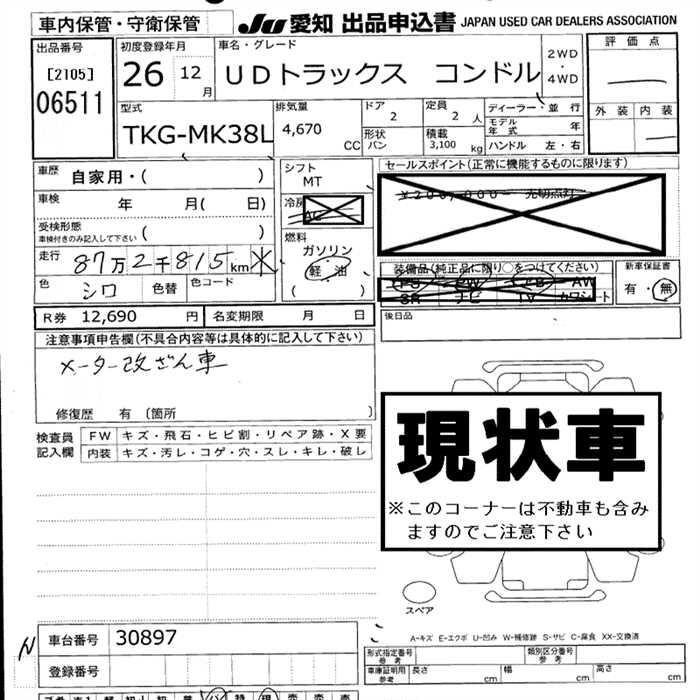 車内保管・守衛保管
JU 愛知 出品申込書 JAPAN USED CAR DEALERS ASSOCIATION
出品番号
[2105]
06511
初度登録年月
26 12月
車名・グレード
UDトラックス コンドル
2WD
・
4WD
評価点
外装 内装
型式
TKG-MK38L
排気量
4,670 CC
ドア
2
形状
バン
定員
2 人
積載
3,100 kg
ディーラー・並行
モデル年式 年
ハンドル 左・右
車歴
自家用・( )
車検 年 月( 日)
受検形態
車検付きのみ記入して下さい ( )
走行 87万2千815km ※
色 シロ 色替 色コード
シフト
MT
冷房
AC
燃料
ガソリン
軽・油
( )
セールスポイント(正常に機能するものに限ります)
¥200,000- 光切点灯
装備品(純正品に限り○をつけてください)
PS PW エアB AW
SR ナビ TV カワシート
新車保証書
有・無
後日品
R券 12,690 円 名変期限 月 日
注意事項申告欄(不具合内容等は具体的に記入して下さい)
メーター改ざん車
修復歴 有 〔箇所 〕
検査員記入欄
FW キズ・飛石・ヒビ割・リペア跡・X要
内装 キズ・汚レ・コゲ・穴・スレ・キレ・破レ
現状車
※このコーナーは不動車も含み
ますのでご注意下さい
スペア
A-キズ E-エクボ U-凹み W-補修跡 S-サビ C-腐食 XX-交換済
車台番号 30897
登録番号
形式指定番号 参考
類別区分番号 参考
車庫証明用 参考 長さ cm 幅 cm 高さ cm